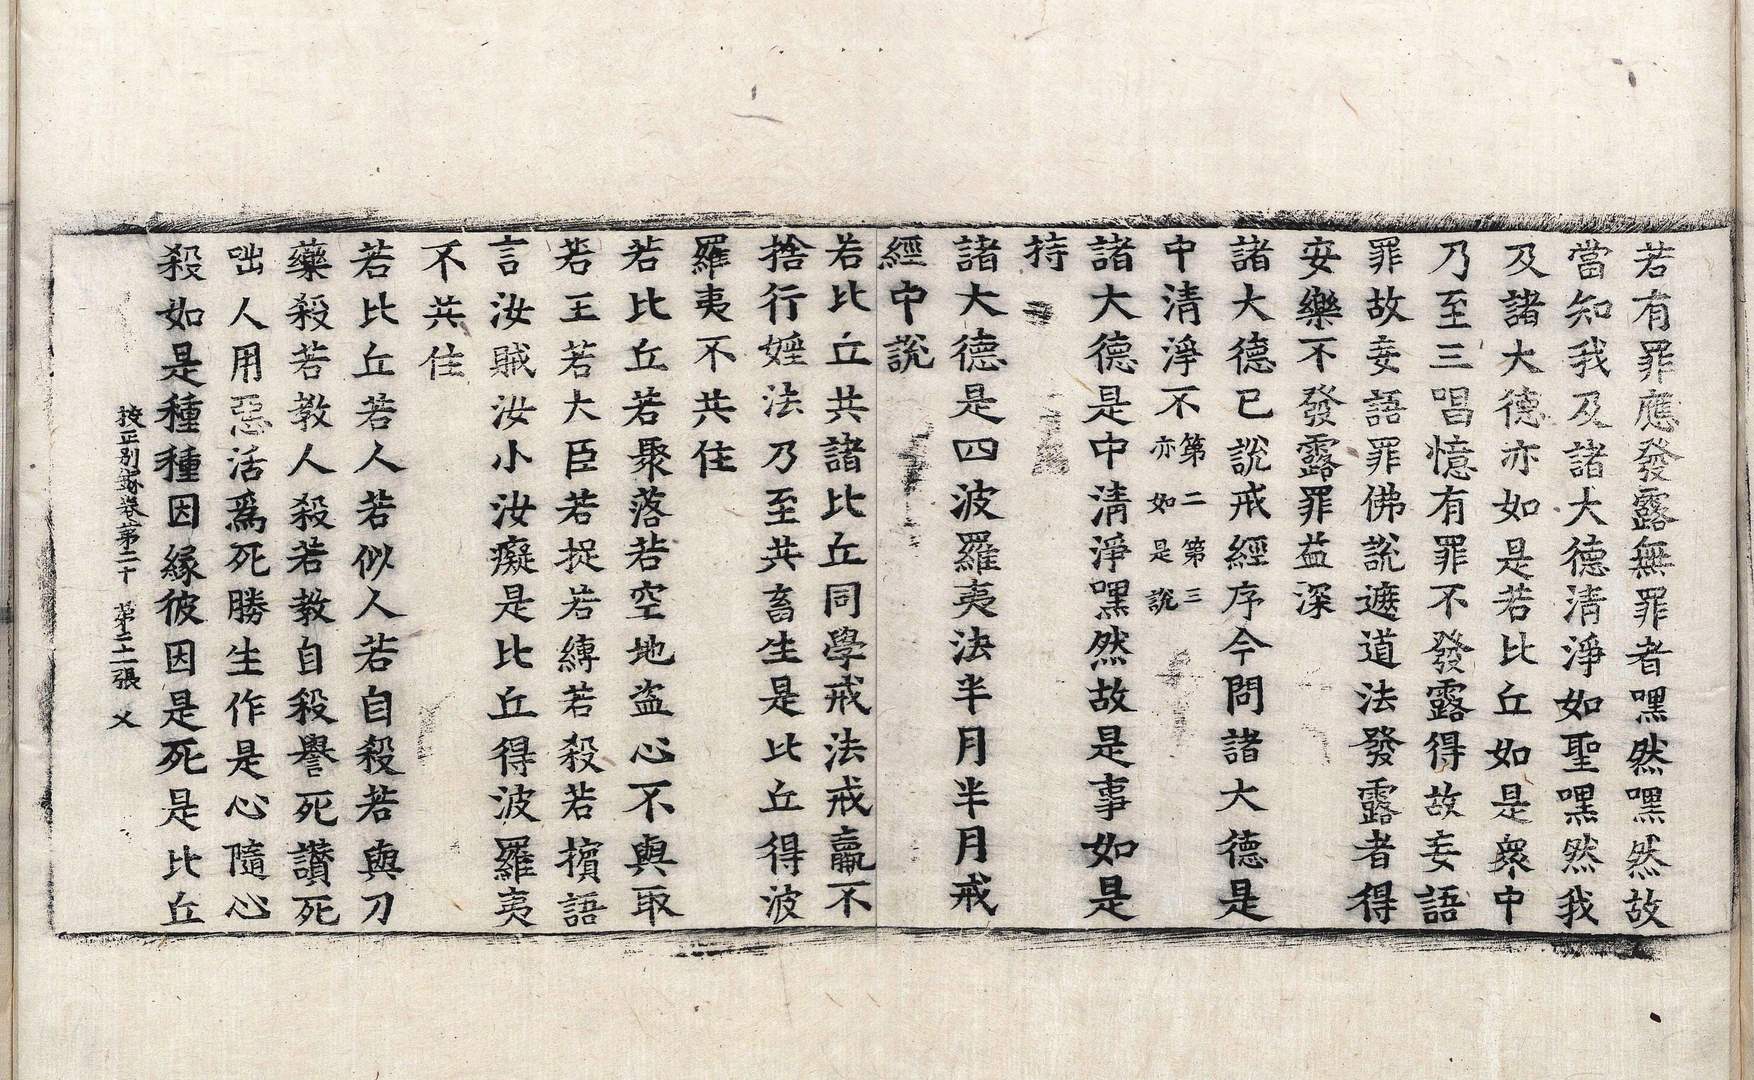 若有罪應發露無罪者嘿然嘿然故
當知我及諸大德清淨如聖嘿然我
及諸大德亦如是若比丘如是衆中
乃至三唱憶有罪不發露得故妄語
罪故妄語罪佛說遮道法發露者得
安樂不發露罪益深
諸大德已說戒經序今問諸大德是
中清淨不第二第三亦如是說
諸大德是中清淨嘿然故是事如是
持
諸大德是四波羅夷法半月半月戒
經中說
若比丘共諸比丘同學戒法戒羸不
捨行婬法乃至共畜生是比丘得波
羅夷不共住
若比丘若聚落若空地盗心不與取
若王若大臣若捉若縛若殺若擯語
言汝賊汝小汝癡是比丘得波羅夷
不共住
若比丘若人若似人若自殺若與刀
藥殺若教人殺若教自殺譽死讃死
咄人用惡活爲死勝生作是心隨心
殺如是種種因緣彼因是死是比丘
挍正別錄卷第二十 第二十二張 乂